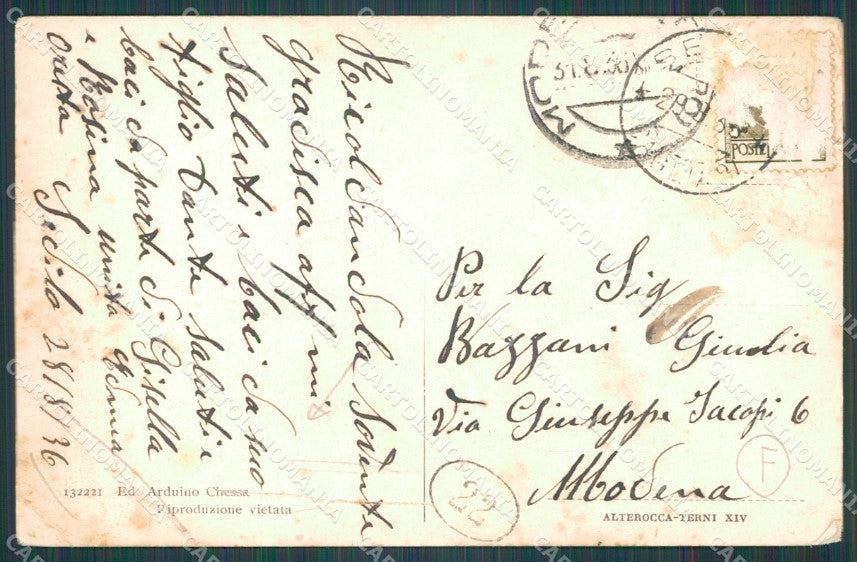 Ricoldandola sovente
gradisca affmi
Saluti e baci da suo
figlio Dante saluti e
baci da parte di Gisella
e Rosina unita Edma
Sedilo 28/8/36
Per la Sig
Bazzani Giudia
Via Giuseppe Jacopi 6
Modena
22
F
31.8.36
POSTE
132221 Ed. Arduino Chessa
Riproduzione vietata
ALTEROCCA-TERNI XIV
CARTOLINOMANIA